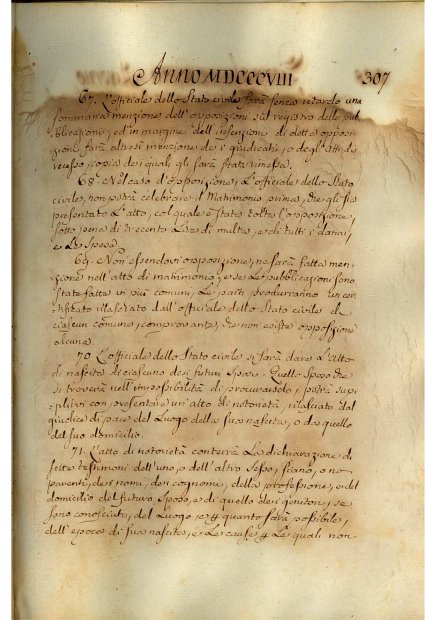 Anno MDCCCVIII 307
67. L'officiale dello Stato civile farà senza ritardo una
sommaria menzione dell'opposizioni sul registro delle pub
blicazioni, ed in margine dell'inscrizione di dette opposi
zioni farà altresì menzione dei giudicati, o degli atti di
recesso, copia dei quali gli sarà stata rimessa.
68. Nel caso d'opposizione, L'officiale dello Stato
civile, non potrà celebrare il Matrimonio, prima, che gli sia
presentato L'atto, col quale è stata tolta l'opposizione,
sotto pena di trecento Lire di multa, e di tutti i danni,
e Le Spese.
69. Non essendovi opposizione, ne sarà fatta men-
zione nell'atto di matrimonio; e se Le pubblicazioni sono
state fatte in più comuni, Le parti produrranno un cer
tificato rilasciato dall'officiale dello Stato civile di
ciascun comune, comprovante, che non esiste opposizione
alcuna.
70. L'officiale dello Stato civile si farà dare L'Atto
di nascita di ciascuno dei futuri Sposi. Quello Sposo che
si troverà nell'impossibilità di procurarselo, potrà sup-
plirvi con presentare un'atto di notorietà, rilasciato dal
giudice di pace del Luogo della sua nascita, o da quello
del suo domicilio.
71. L'atto di notorietà conterrà La dichiarazione di
sette testimoni dell'uno, o dell'altro Sesso, siano, o no
parenti, dei nomi, dei cognomi, della professione, e del
domicilio del futuro Sposo, e di quello dei genitori, se
sono conosciuti, del Luogo, e quanto sarà possibile,
dell'epoca di sua nascita, e Le cause Le quali non-